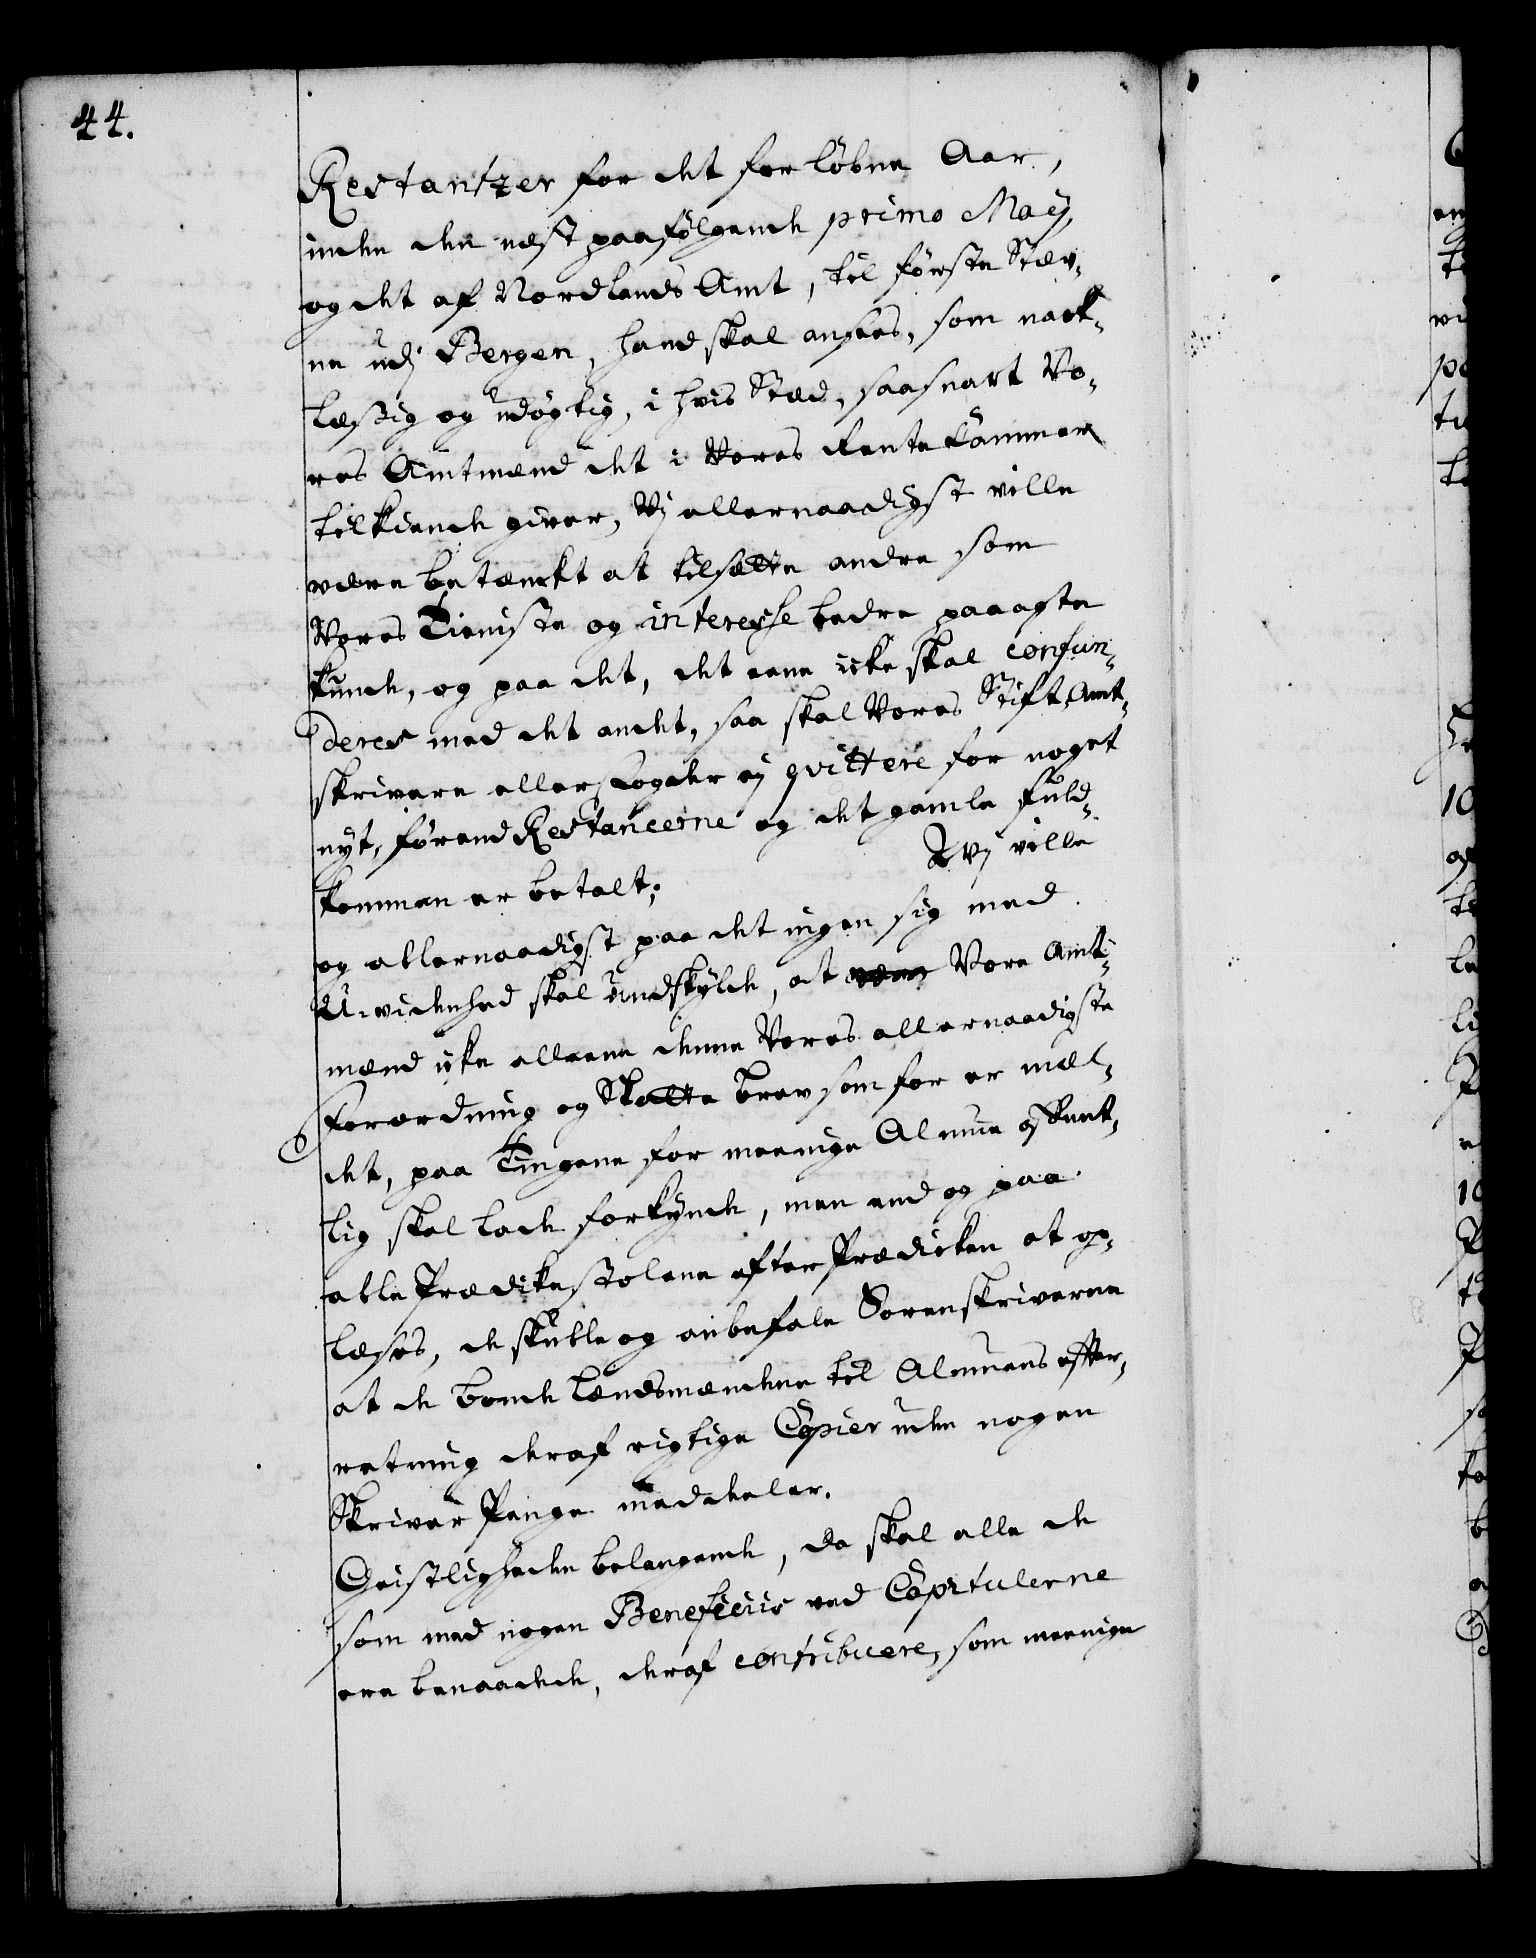 44.
Restantzer for det forløbne Aar,
inden den nest paafølgende primo Maij,
og det af Nordlands Amt, til første Stæv¬
ne udj Bergen, hand skal ansees, som nack¬
leßig og udögtig, i hvis Stæd, saasnart Vo¬
res Amtmænd det i Vores Rentekammer
tilkiende giver, Vj allernaadigst ville
være betænckt at tilsætte andre som
Vores Tieniste og interesse bedre paaagte
kunde, og paa det, det eene icke skal confun¬
deres med det andet, saa skal Vores Stift Amt¬
skrivere eller Fogeder ej qvittere for noget
nyt, førend Restancerne og det gamle fuld¬
kommen er betalt;
Vj ville
og allernaadigst paa det ingen sig med
U-videnhed skal undskylde, at Vore Amt¬
mænd icke alleene denne Vores allernaadigste
Forordning og Skatte brev som før er mæl¬
det, paa Tingene for meenige Almue offent¬
lig skal lade forkynde, men end og paa
alle Prædikestolene efter Prædicken at op¬
læses, de skulle og anbefale Sorenskriverne
at de bonde lændsmændene til Almuens effter¬
retning deraf rigtige Copier uden nogen
Skriver Penge meddeeler.
Geistligheden belangende, da skal alle de
som med nogen Beneficiis ved Capitulerne
ere benaadede, deraf contribuere, som meenige